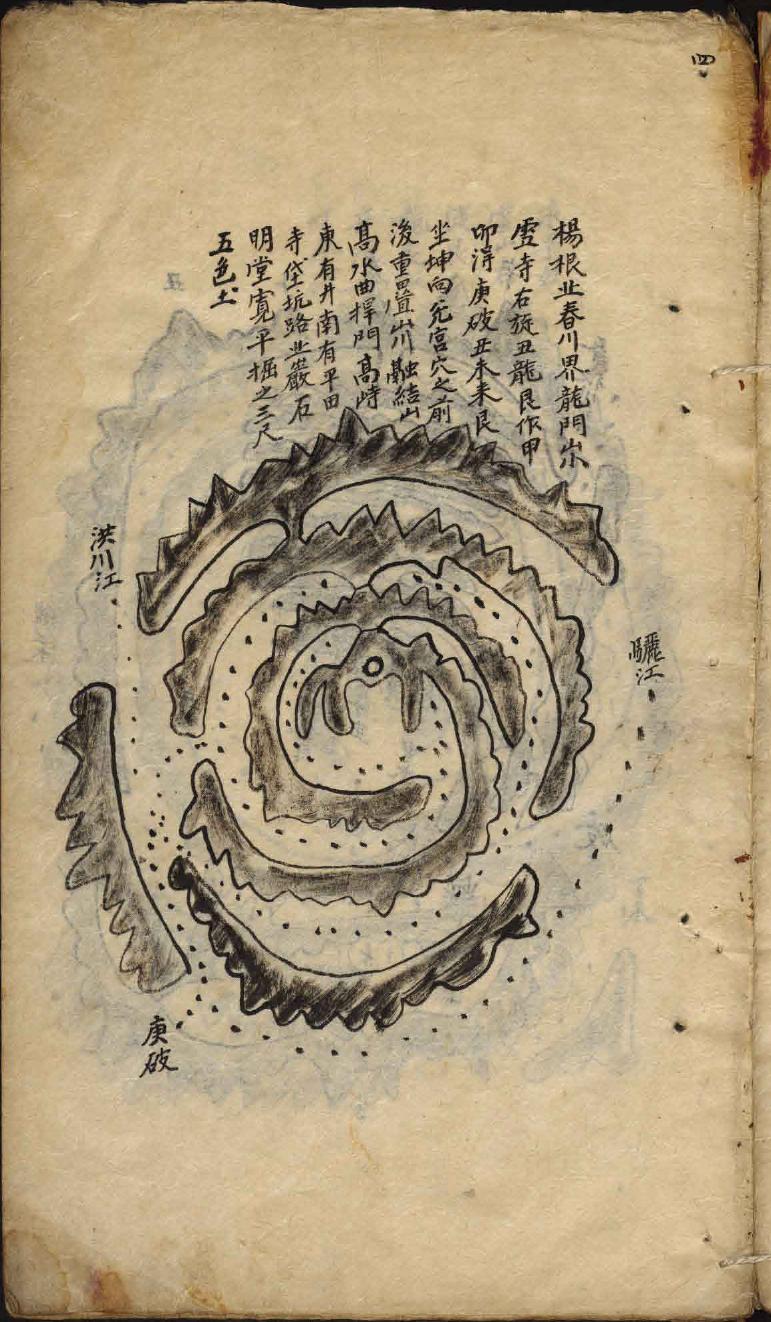 四
楊根北春川界龍門山
雲寺右旋丑龍艮作甲
卯淂庚破丑未来艮
坐坤向兊宮穴之前
後重疊山川融結山
高水曲捍門高峙
東有井南有平田
寺垈坑路北巖石
明堂寬平掘之三尺
五色土
洪川江
驪江
庚破